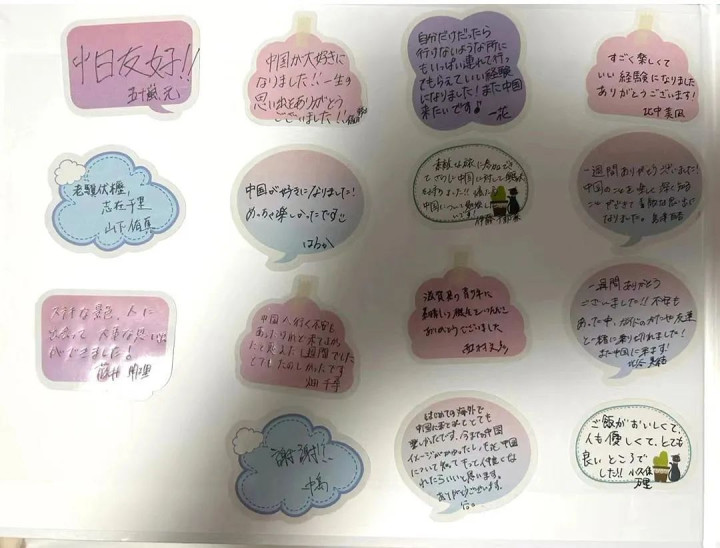 中日友好!!
五十嵐 元
中国が大好きに
なりました!!一生の
思い出をありがとう
ございました!!
自分だけだったら
行けないような所に
もいっぱい連れて行っ
てもらえていい経験
になりました!また中国
来たいです♪
一花
すごく楽しくて
いい経験になりました
ありがとうございます!
老驥伏櫪,
志在千里
山下
中国が好きになりました!
めっちゃ楽しかったです
はるか
素敵な旅に参加でき
中国に対して
中国について勉強し
です!
一週間ありがとうございました!
中国のことを楽しく深く知る
ことができて素敵な思い出に
なりました。
大好きな景色、人に
出会って 大事な思い
ができました!
藤井
中国へ行く不安も
あったけれど来てよかっ
たと思えた1週間でした
とてもたのしかったです
畑 千尋
滋賀県の青少年に
素晴らしい機会を
ありがとうございました
一週間ありがとう
ございました!! 不安も
あった中、
と一緒に乗り切れました!
また中国に来ます!
謝謝!!
中島
はじめての海外で
中国に来れてとても
楽しかったです。今までの中国
イメージが
について知ってもっと仲良くな
れたらいいと思います。
ありがとうございます。
ご飯がおいしくて、
人も優しくて、とても
良いところで
した!!